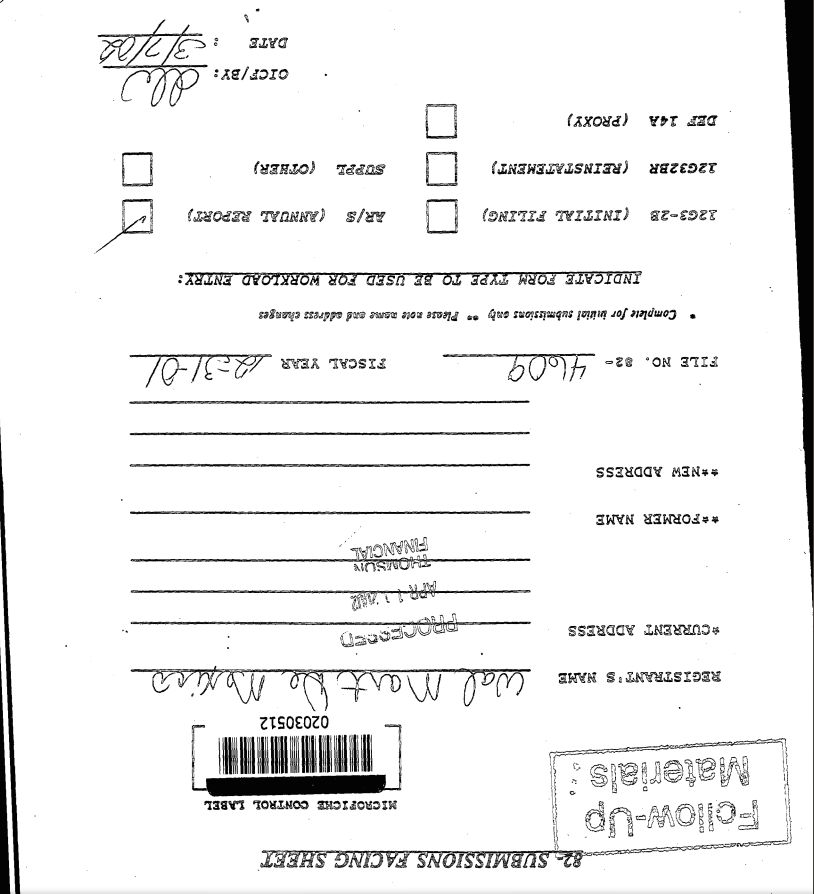 82- SUBMISSIONS FACING SHEET
Follow-Up
Materials
MICROFICHE CONTROL LABEL
02030512
REGISTRANT'S NAME Wal Mart De Mexico
*CURRENT ADDRESS
PROCESSED
APR 11 2002
THOMSON
FINANCIAL
**FORMER NAME
**NEW ADDRESS
FILE NO. 82- 4609 FISCAL YEAR 12-31-01
* Complete for initial submissions only ** Please note name and address changes
INDICATE FORM TYPE TO BE USED FOR WORKLOAD ENTRY:
12G3-2B (INITIAL FILING) AR/S (ANNUAL REPORT)
12G32BR (REINSTATEMENT) SUPPL (OTHER)
DEF 14A (PROXY)
OICF/BY:
DATE : 3/7/02